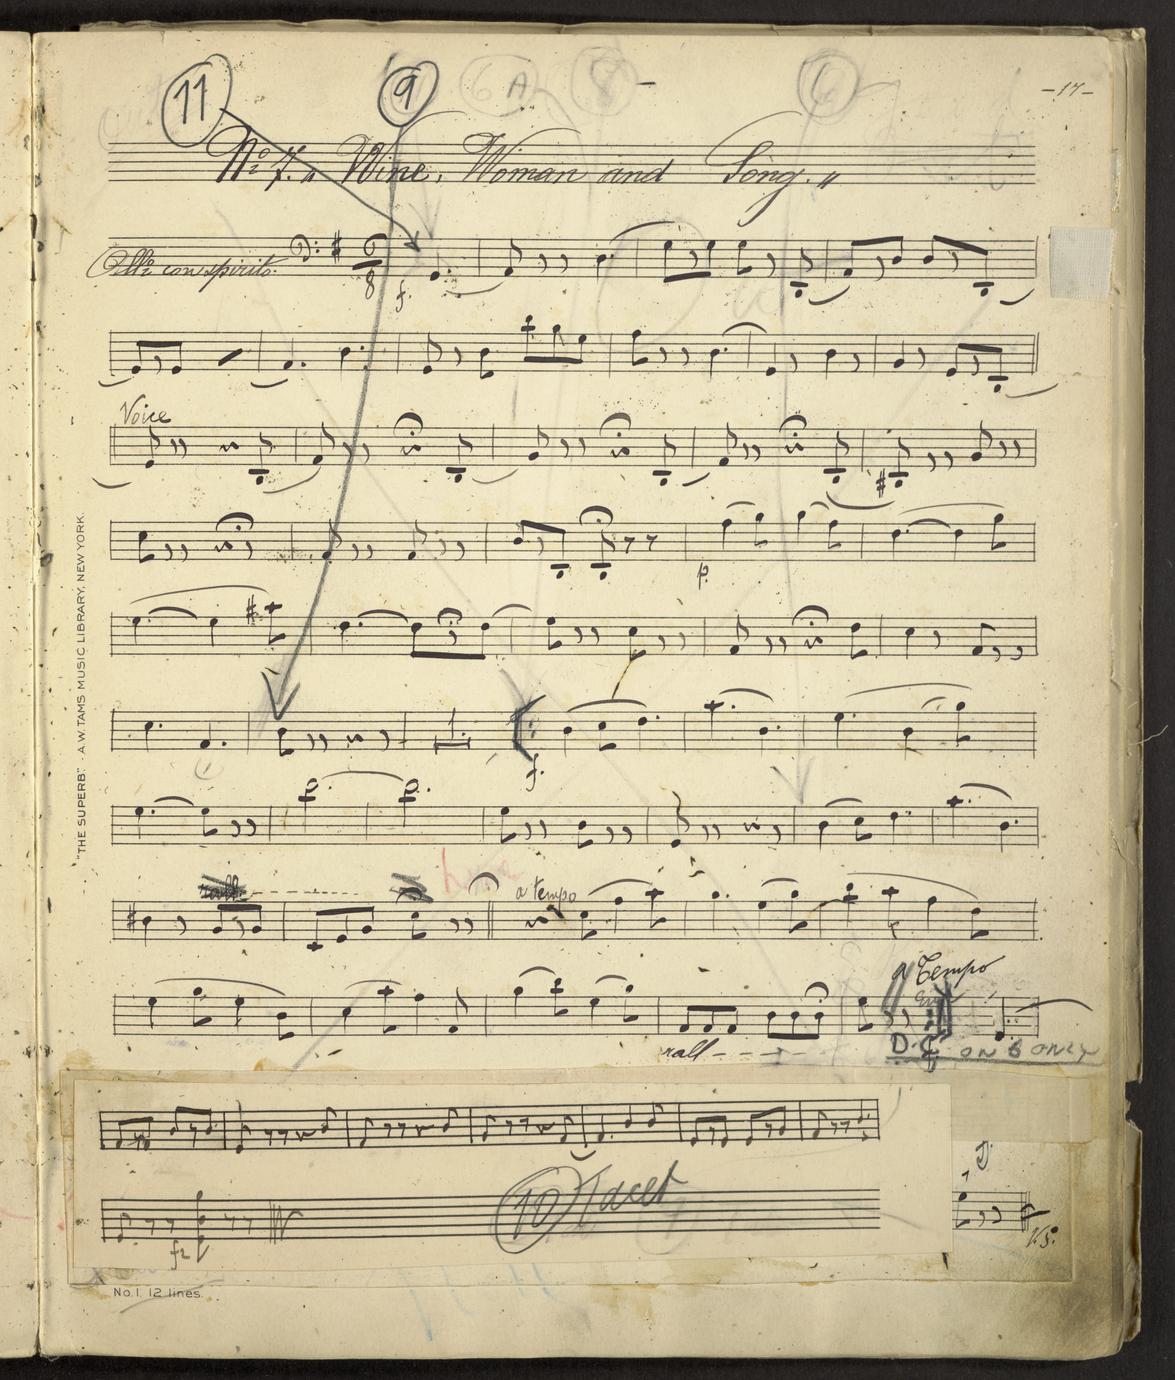 11 9 6A 8 - 6 -17-
No 7. "Wine, Woman and Song."
Allo con spirito. 9 8 f.
Voice
p.
1.
f.
rall a tempo
a Tempo
rall
D.C. ON 6 ONLY
10 Tacet
fz
V.S.
"THE SUPERB" A.W. TAMS MUSIC LIBRARY, NEW YORK.
No. 1. 12 lines.